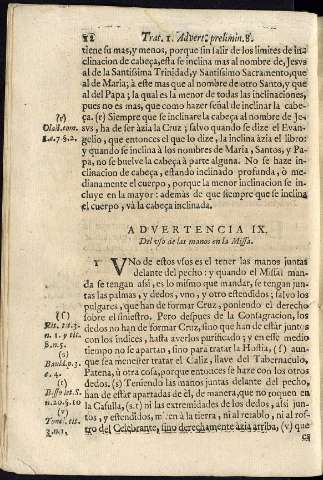 12 Trat. 1. Advert. prelimin. 8.
tiene su mas, y menos, porque sin salir de los limites de in-
clinacion de cabeça, esta se inclina mas al nombre de Jesvs
al de la Santissima Trinidad, y Santissimo Sacramento, que
al de Maria; à este mas que al nombre de otro Santo, y que
al del Papa; la qual es la menor de todas las inclinaciones,
pues no es mas, que como hazer señal de inclinar la cabe-
ça. (e) Siempre que se inclinare la cabeça al nombre de Je-
svs, ha de ser àzia la Cruz; salvo quando se dize el Evan-
gelio, que entonces el que lo dize, la inclina àzia el libro:
y quando se inclina à los nombres de Maria, Santos, y Pa-
pa, no se buelve la cabeça à parte alguna. No se haze in-
clinacion de cabeça, estando inclinado profunda, ò me-
dianamente el cuerpo, porque la menor inclinacion se in-
cluye en la mayor: además de que siempre que se inclina
el cuerpo, và la cabeça inclinada.
(e)
Olall. tom.
ADVERTENCIA IX.
Del vso de las manos en la Missa.
1 VNo de estos vsos es el tener las manos juntas
delante del pecho: y quando el Missal man-
da se tengan assi, es lo mismo que mandar, se tengan jun-
tas las palmas, y dedos, vno, y otro estendidos; salvo los
pulgares, que han de formar Cruz, poniendo el derecho
sobre el siniestro. Pero despues de la Consagracion, los
dedos no han de formar Cruz, sino que han de estàr juntos
con los indices, hasta averlos purificado; y en esse medio
tiempo no se apartan, sino para tratar la Hostia, (f) aun-
que sea menester tratar el Caliz, llave del Tabernaculo,
Patena, ù otra cosa, porque entonces se haze con los otros
dedos. (s) Teniendo las manos juntas delante del pecho,
han de estàr apartadas de èl, de manera, que no roquen en
la Casulla, (s.t) ni las extremidades de los dedos, assi jun-
tos, y estendidos, miren à la tierra, ni al rezablo, ni al ros-
tro del Celebrante, sino derechamente àzia arriba, (v) que
(f)
Rit. tit. 3.
n. 1. y tit.
8. n. 5.
(s)
Bauld. p. 3.
c. 4.
(t)
(v)